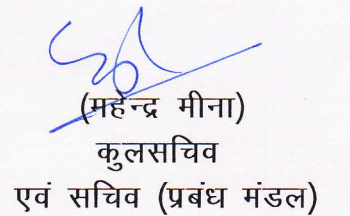 (महेन्द्र मीना)
कुलसचिव
एवं सचिव (प्रबंध मंडल)